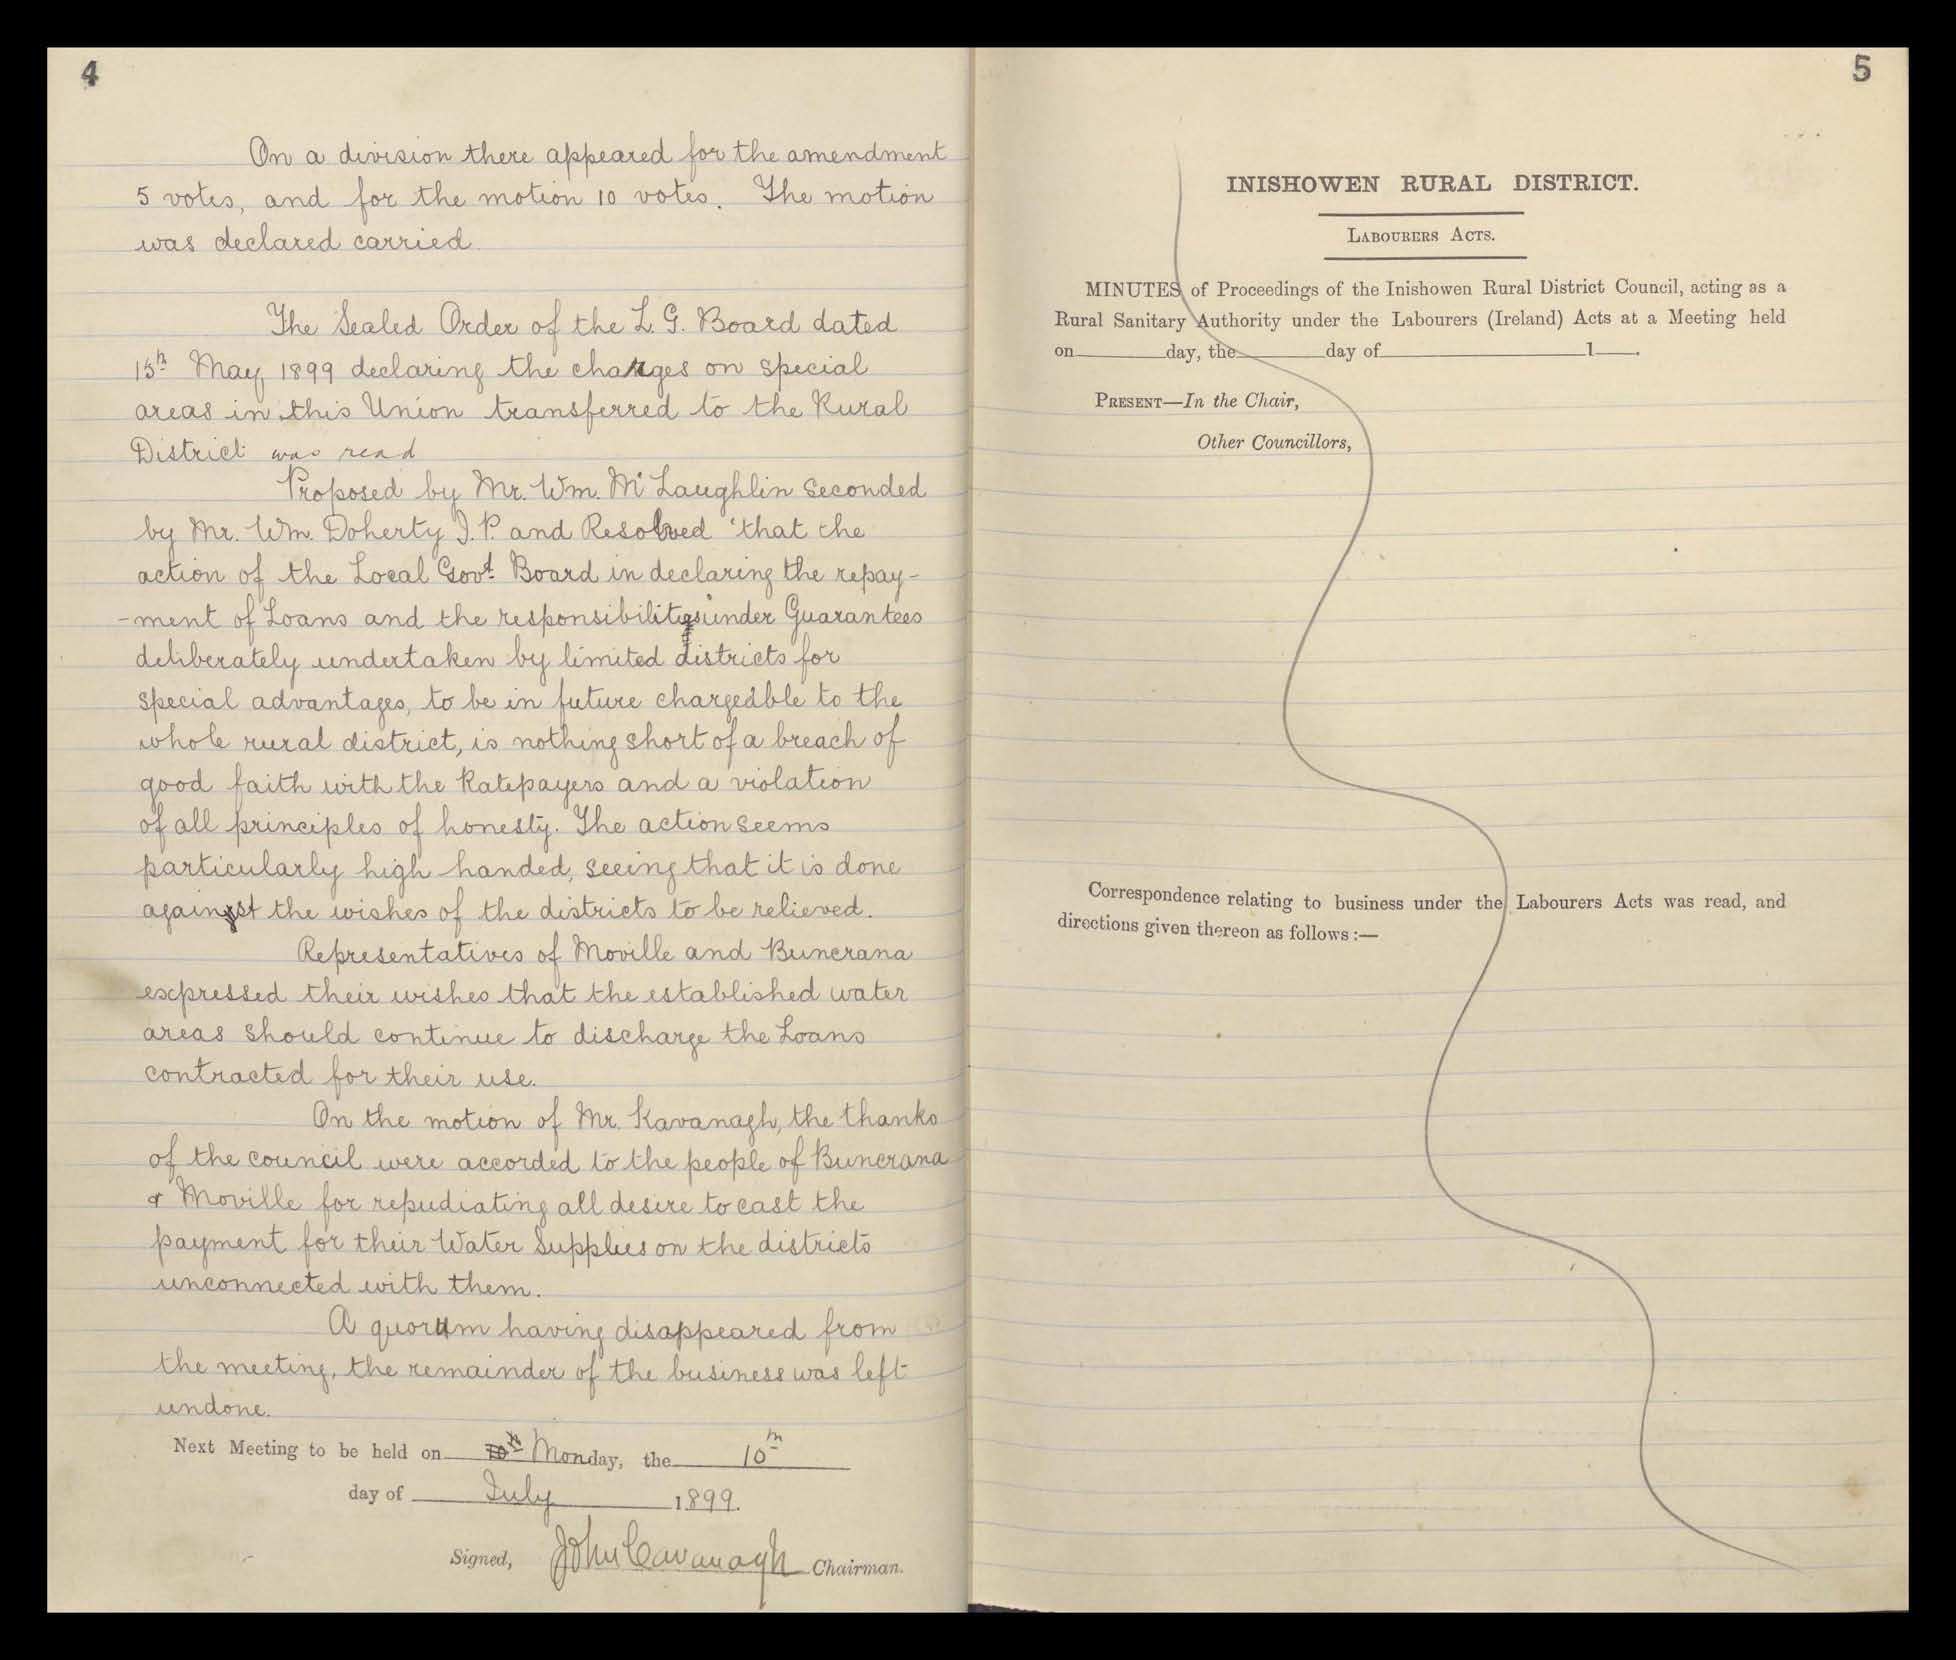 4
On a division there appeared for the amendment
5 votes, and for the motion 10 votes. The motion
was declared carried.
The Sealed Order of the L. G. Board dated
15th May, 1899 declaring the charges on special
areas in this Union transferred to the Rural
District was read
Proposed by Mr. Wm. McLaughlin Seconded
by Mr. Wm. Doherty J. P. and Resolved "that the
action of the Local Govt. Board in declaring the repay-
-ment of Loans and the responsibilitys under Guarantees
deliberately undertaken by limited districts for
special advantages, to be in future chargeable to the
whole rural district, is nothing short of a breach of
good faith with the Ratepayers and a violation
of all principles of honesty. The action seems
particularly high handed, seeing that it is done
against the wishes of the districts to be relieved.
Representatives of Moville and Buncrana
expressed their wishes that the established water
areas should continue to discharge the Loans
contracted for their use.
On the motion of Mr. Kavanagh, the thanks
of the council were accorded to the people of Buncrana
& Moville for repudiating all desire to cast the
payment for their Water Supplies on the districts
unconnected with them.
A quorum having disappeared from
the meeting, the remainder of the business was left
undone.
Next Meeting to be held on 10th Monday, the 10th
day of July 1899.
Signed, John Cavanagh Chairman.
5
INISHOWEN RURAL DISTRICT.
LABOURERS ACTS.
MINUTES of Proceedings of the Inishowen Rural District Council, acting as a
Rural Sanitary Authority under the Labourers (Ireland) Acts at a Meeting held
on day, the day of 1 .
PRESENT—In the Chair,
Other Councillors,
Correspondence relating to business under the Labourers Acts was read, and
directions given thereon as follows:—